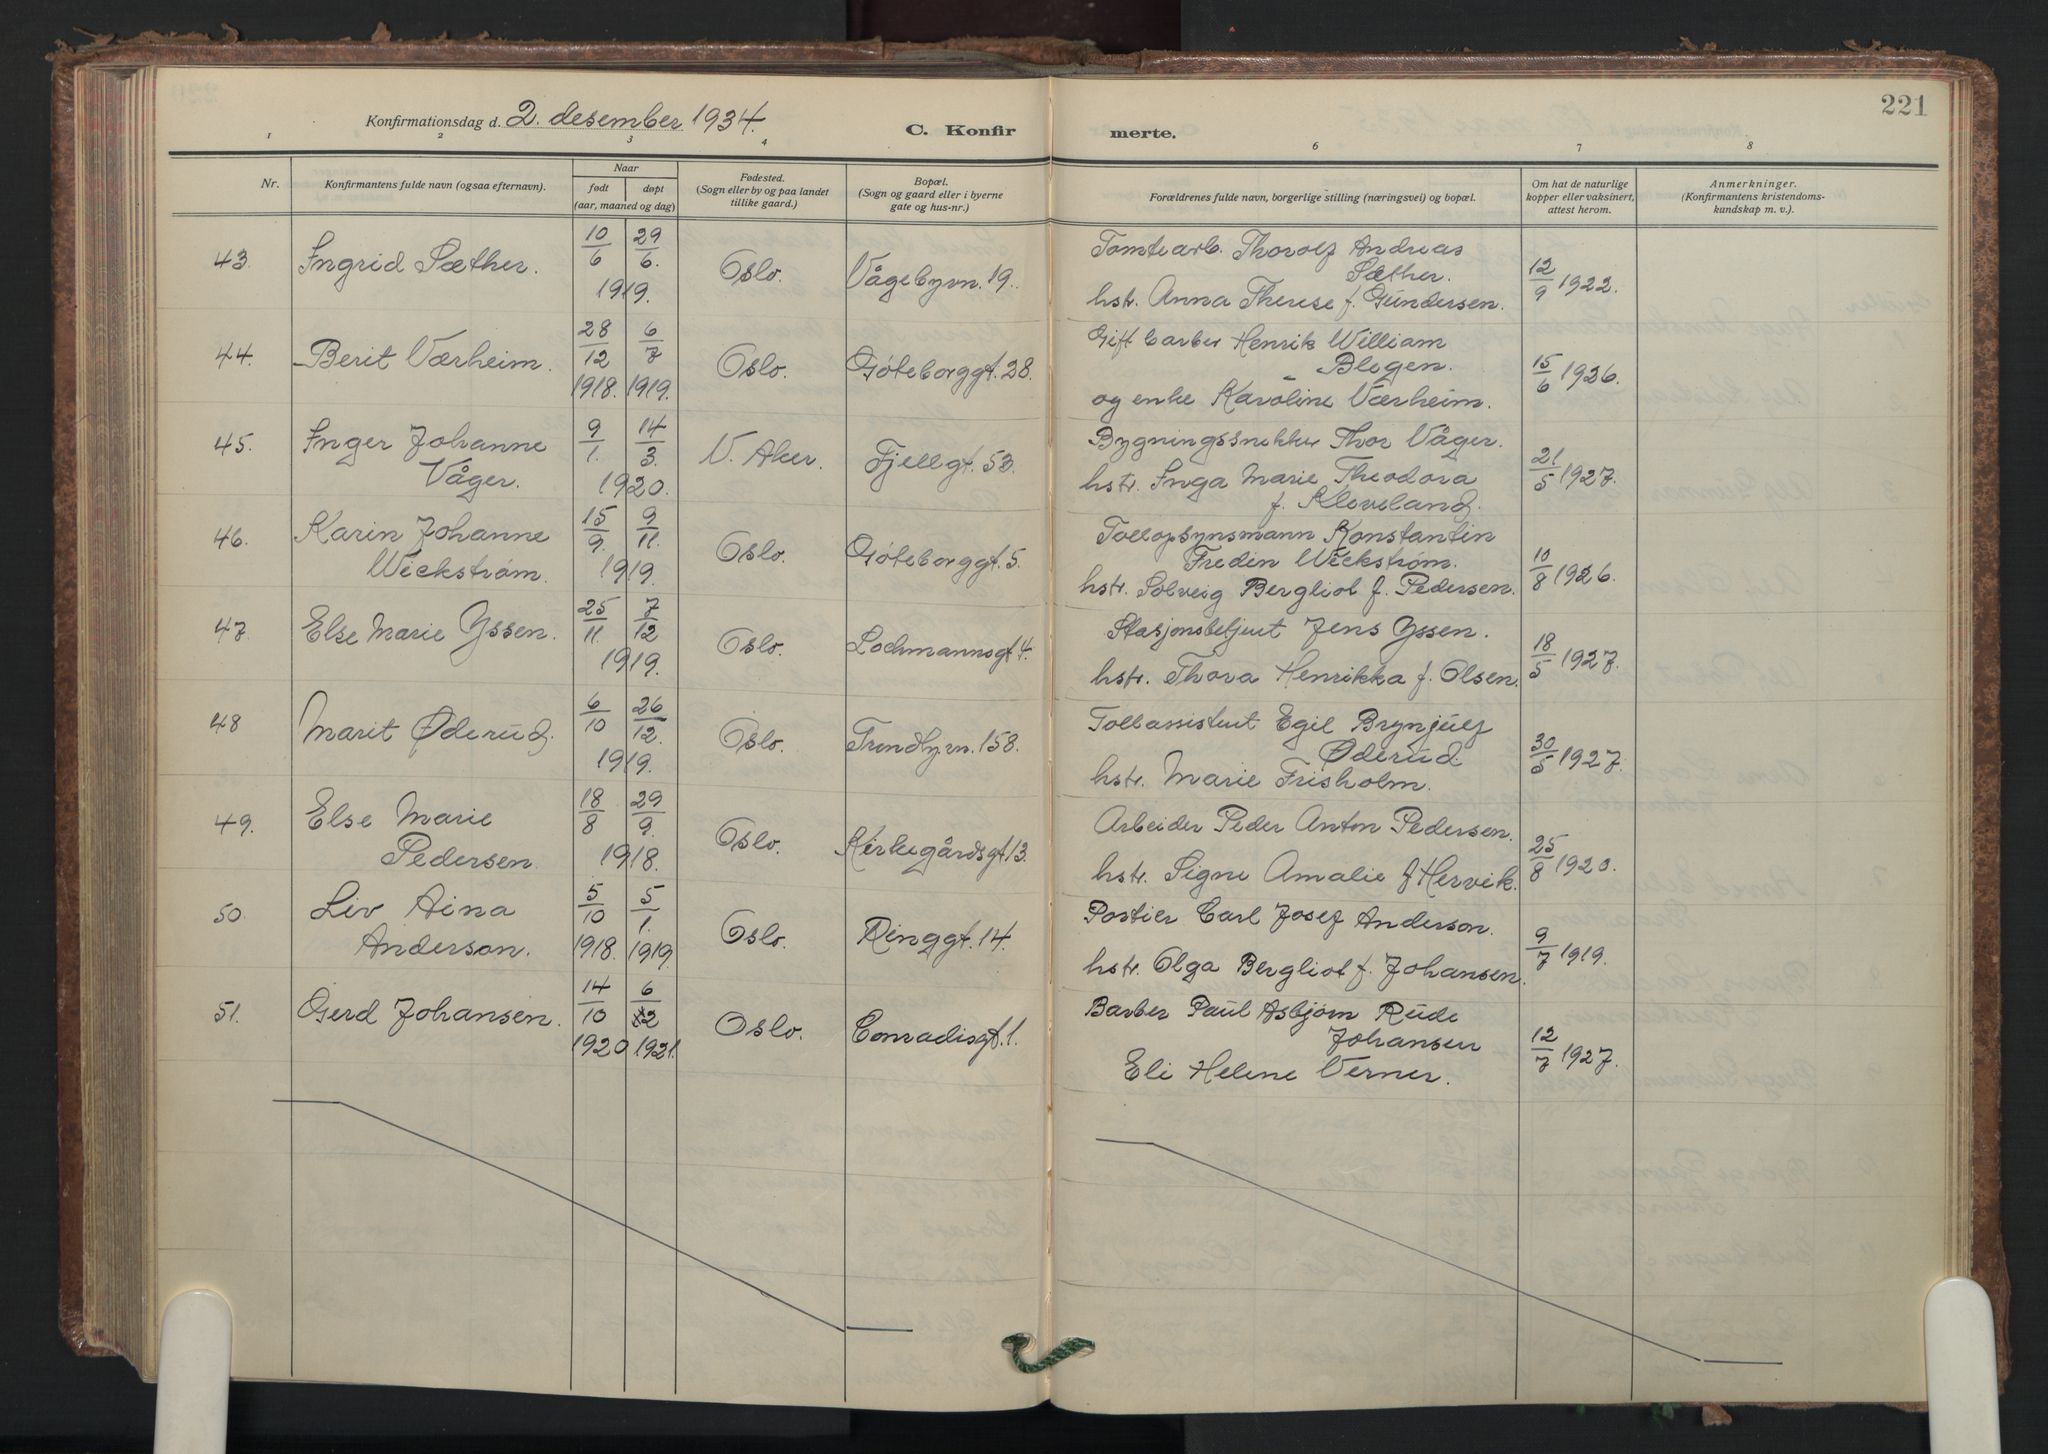 221
Konfirmationsdag d. 2. desember 1934.
C. Konfirmerte.
1 2 3 4 6 7 8
Nr.
Konfirmantens fulde navn (ogsaa efternavn).
Naar
født døpt
(aar, maaned og dag)
Fødested.
(Sogn eller by og paa landet
tillike gaard.)
Bopæl.
(Sogn og gaard eller i byerne
gate og hus-nr.)
Forældrenes fulde navn, borgerlige stilling (næringsvei) og bopæl.
Om hat de naturlige
kopper eller vaksinert,
attest herom.
Anmerkninger.
(Konfirmantens kristendoms-
kundskap m. v.).
43. Ingrid Sæther. 10/6 29/6. 1919. Oslo. Vågebyvn. 19.
Tomtearb. Thorolf Andreas
Sæther.
hstr. Anna Therese f. Gundersen.
12/9 1922.
44. Berit Værheim. 28/12 1918. 6/7 1919. Oslo. Göteborggt. 28.
Gift barber Henrik William
Blegen.
og enke Karoline Værheim.
15/6 1926.
45. Inger Johanne
Våger.
9/1. 14/3. 1920. V. Aker. Fjellgt. 53.
Bygningssnekker Thor Våger.
hstr. Inga Marie Theodora
f. Kloveland.
21/5 1927.
46. Karin Johanne
Wickstrøm.
15/9. 9/11. 1919. Oslo. Göteborggt. 5.
Tollopsynsmann Konstantin
Fredin Wickstrøm.
hstr. Solveig Bergliot f. Pedersen.
10/8 1926.
47. Else Marie Yssen. 25/11. 7/12 1919. Oslo. Lochmannsgt. 4.
Stasjonsbetjent Jens Yssen.
hstr. Thora Henrikka f. Olsen.
18/5 1927.
48 Marit Øderud. 6/10 26/12. 1919. Oslo. Trondhj.vn. 158.
Tollassistent Egil Brynjulf
Øderud.
hstr. Marie Frisholm.
30/5 1927.
49. Else Marie
Pedersen.
18/8 29/9. 1918. Oslo. Kirkegårdsgt. 13.
Arbeider Peder Anton Pedersen.
hstr. Signe Amalie f Hervik.
25/8 1920.
50. Liv Aina
Anderson.
5/10 1918. 5/1. 1919. Oslo. Ringgt. 14.
Portier Carl Josef Anderson.
hstr. Olga Bergliot f. Johansen.
9/7 1919.
51. Gerd Johansen. 14/10 1920 6/2 1921. Oslo. Conradisgt. 1.
Barber Paul Asbjørn Rude
Johansen
Eli Helene Verner.
12/7 1927.